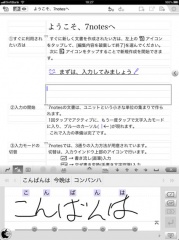 iPad 19:27
ようこそ、7notesへ
ようこそ、7notesへ
①すぐに利用されたい方は
すぐに新しく文書を作成されたい方は、左上の アイコンをタップして、[編集内容を破棄して終了]を選んでください。次に アイコンをタップすることで新規作成を開始できます。
まずは、入力してみましょう
②入力の開始
7notesの文章は、ユニットという小さな単位の集まりで作られます。
1回タップでアクティブに、もう一度タップで文字入力モードに入り、ブルーのカーソル[ ]が現れます。
これで入力の準備は完了です。
③入力モードの切替
7notesでは、次の入力モードが用意されています。
切替は、入力ウィンドウ上部のアイコンで行えます。
書き流し(画期)入力
こんばんは 今晩は コンバンハ
こ ん ば ん は
こんばんは